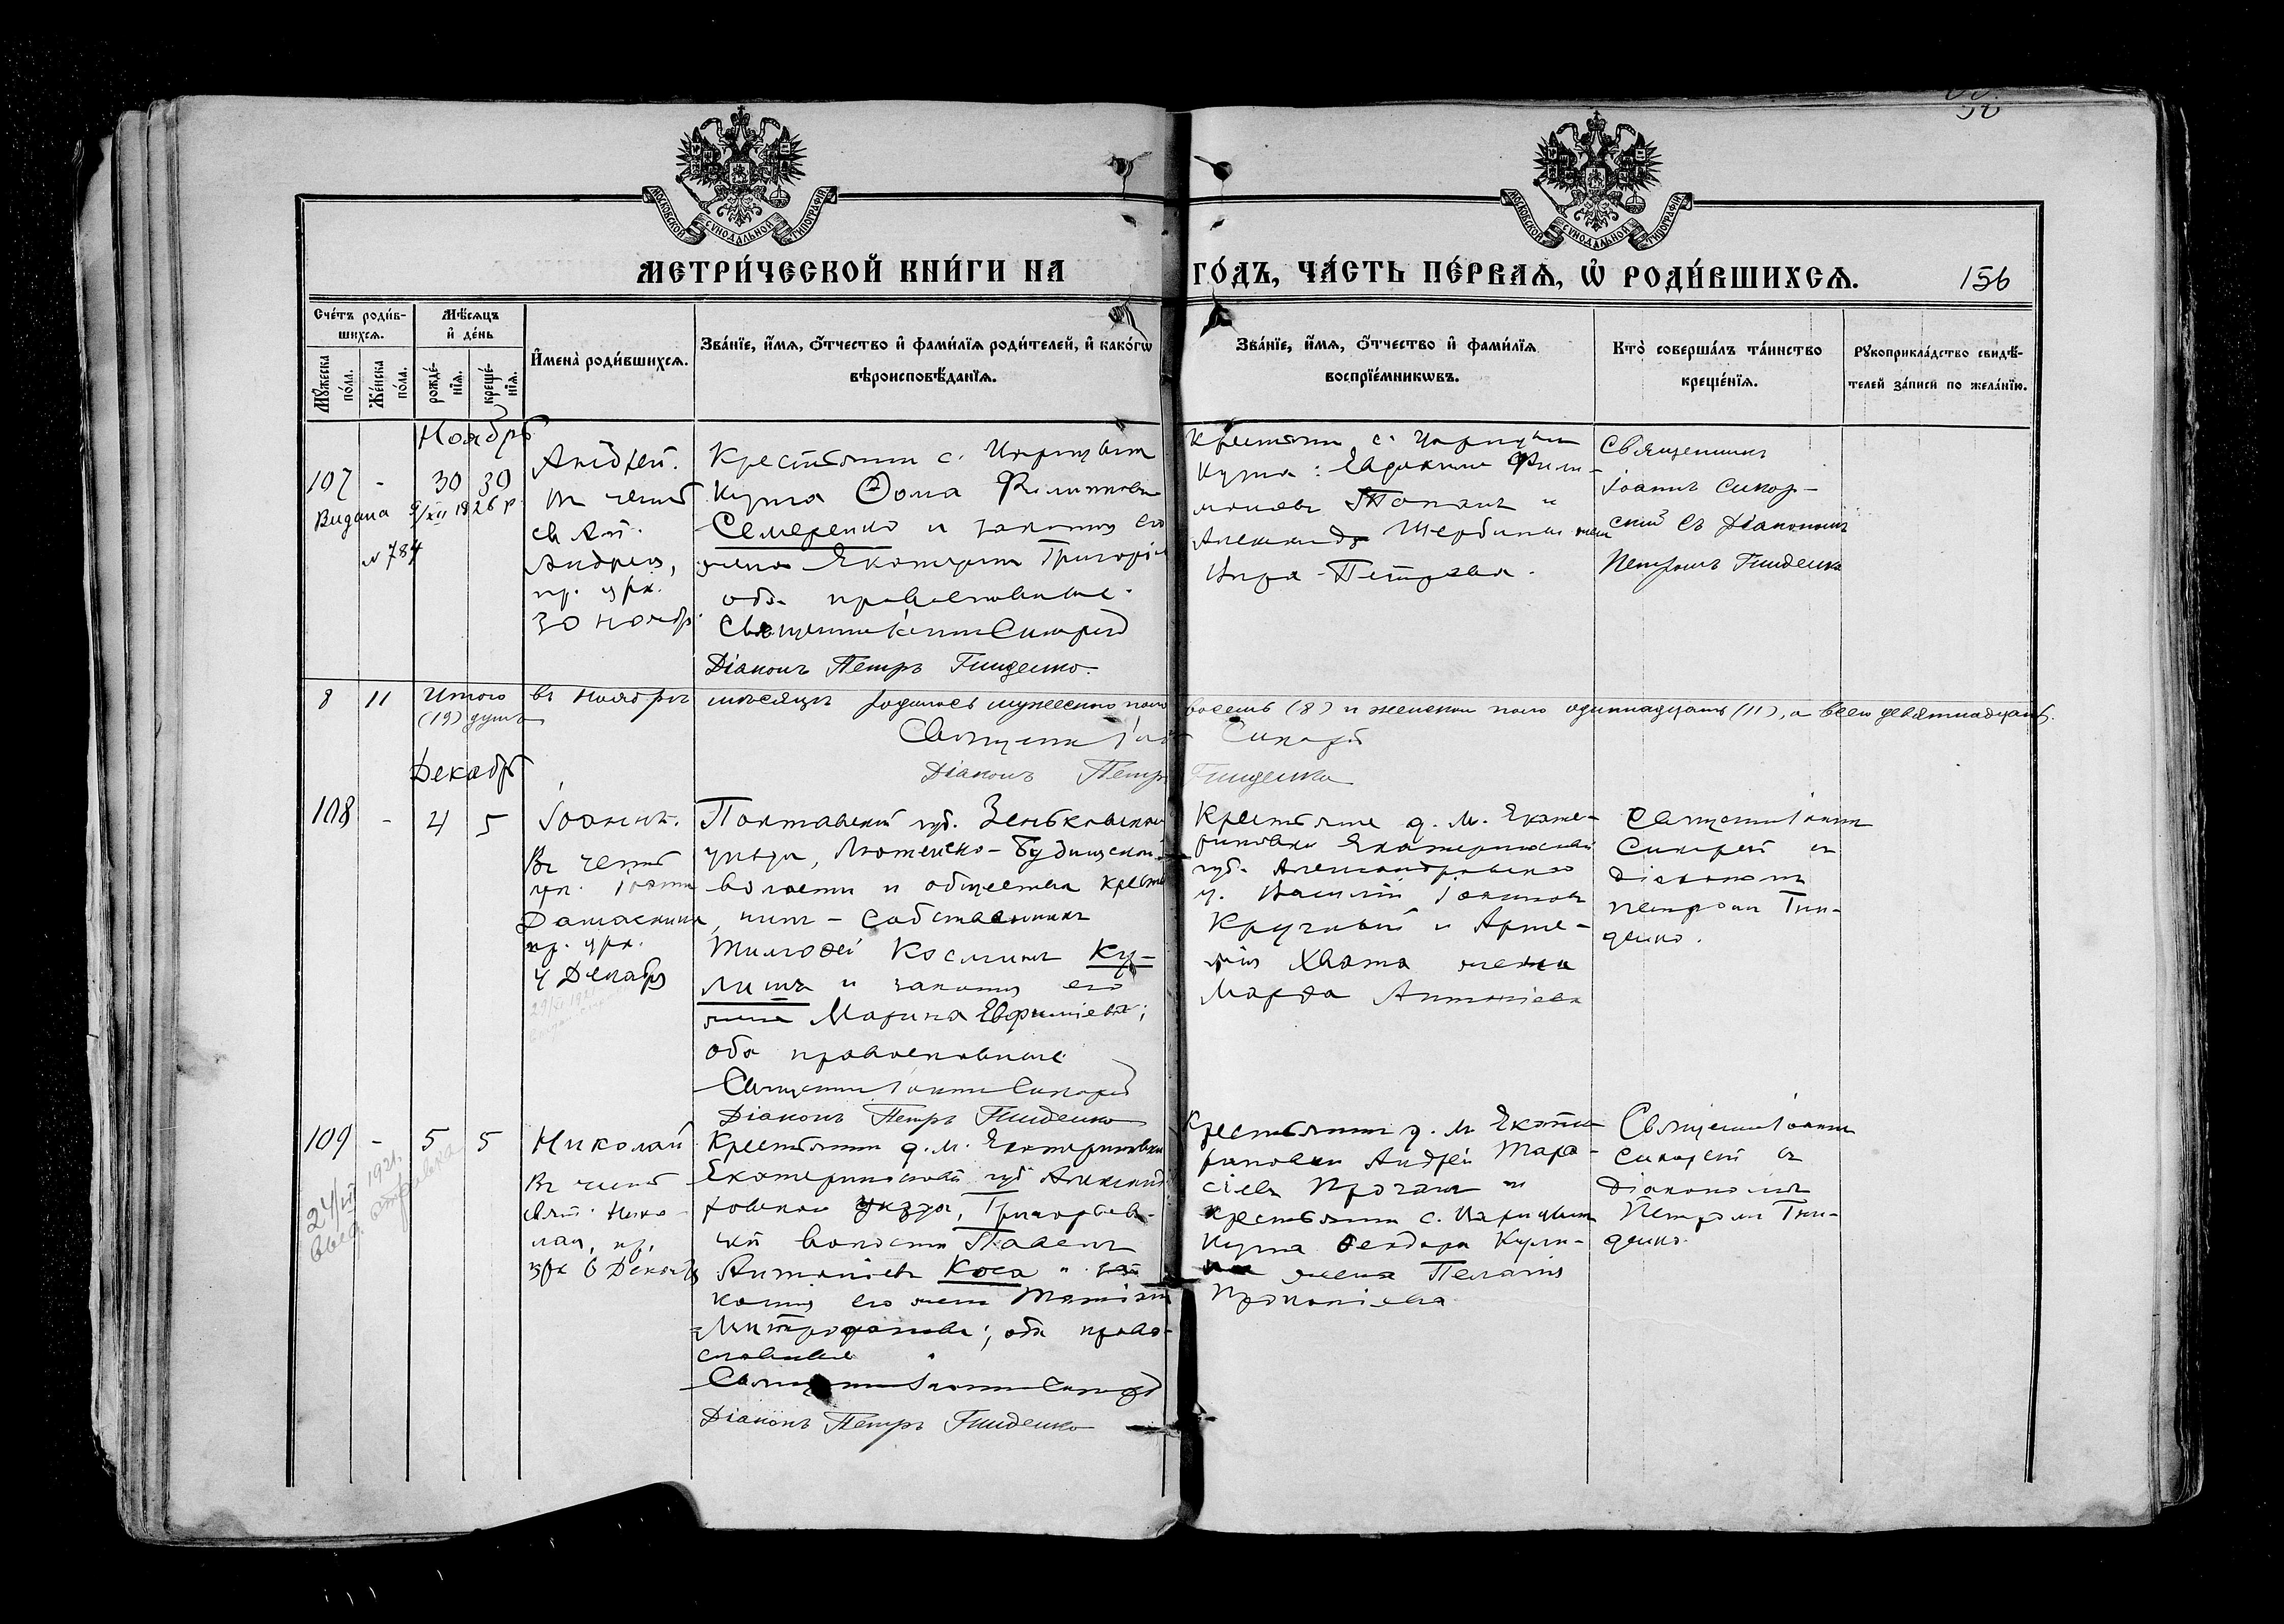 МОСКОВСКОЙ СУНОДАЛЬНОЙ ТИПОГРАФІИ
МОСКОВСКОЙ СУНОДАЛЬНОЙ ТИПОГРАФІИ
МЕТРИ́ЧЕСКОЙ КНИ́ГИ НА ГО́ДЪ, ЧА́СТЬ ПЕ́РВАЯ, Ѡ РОДИ́ВШИХСЯ.
156
Сче́тъ роди́в-
шихся.
Мѣ́сяцъ
и҆ де́нь
Мꙋ́жеска
по́ла.
Же́нска
по́ла.
рожде́-
нїя.
креще́-
нїя.
И҆мена̀ роди́вшихся.
Зва́нїе, и҆́мя, ѻ҆́тчество и҆ фами́лїя роди́телей, и҆ како́гѡ
вѣроисповѣ́данїя.
Зва́нїе, и҆́мя, ѻ҆́тчество и҆ фами́лїя
воспрїе́мникѡвъ.
Кто̀ соверша́лъ та́инство
креще́нїя.
Рꙋкоприкла́дство свидѣ́-
телей за́писи по жела́нїю.
Ноябрь
107 - 30 30
Видана 1926 р.
№ 784
Андрей.
въ честь
св. Ап.
Андрея,
пр. црк.
30 ноябр.
Крестьянинъ с.
Ѳома Филипповъ
Семеренко и законная его
жена Екатерина Григоріева
оба православные.
Священникъ Іоаннъ Сикорскій
Діаконъ Петръ Гниденко.
Крестьяне с.
Евдокимъ Фили-
моновъ и
Александра Щербины жена
Петрова.
Священникъ
Іоаннъ Сикор-
скій съ Діакономъ
Петромъ Гниденко
8 11 Итого въ Ноябрѣ мѣсяцѣ родилось мужеского пола восемь (8) и женскаго пола одиннадцать (11), а всего девятнадцать
(19) душъ
Священникъ Іоаннъ Сикорскій
Діаконъ Петръ Гниденко
Декабрь
108 - 4 5
Іоаннъ.
Въ честь
пр. Іоанна
Дамаскина,
пр. црк.
4 Декабря
Полтавской губ. Зеньковскаго
уѣзда, Лютенско-Будищской
волости и общества кресть-
нинъ-собственникъ
Тимофей Косминъ Ку-
лишъ и законная его
жена Марина Евфиміева;
оба православные
Священникъ Іоаннъ Сикорскій
Діаконъ Петръ Гниденко
Крестьяне д. М. Екате-
риновки Екатеринославской
губ. Александровскаго
у. Василій Іоанновъ
Кручный и Арте-
мія Хвата жена
Марѳа Антоніева
Священникъ Іоаннъ
Сикорскій съ
діакономъ
Петромъ Гни-
денко.
109 - 5 5
24/VII 1921.
Николай
Въ честь
Свят. Нико-
лая, пр.
црк 6 Декабря
Крестьянинъ д. М. Екатериновки
Екатеринославской губ Александ-
ровскаго уѣзда, Григорьев-
ской волости Павелъ
Антоніевъ Коса и за-
конная его жена Татіана
Митрофанова; оба право-
славные
Священникъ Іоаннъ Сикорскій
Діаконъ Петръ Гниденко
Крестьянинъ д. М Екате-
риновки Андрей Тара-
сіевъ и
крестьянина с.
Ѳеодора Кули-
жена Пелагія
Прокопіева
Священникъ Іоаннъ
Сикорскій съ
Діакономъ
Петромъ Гни-
денко.